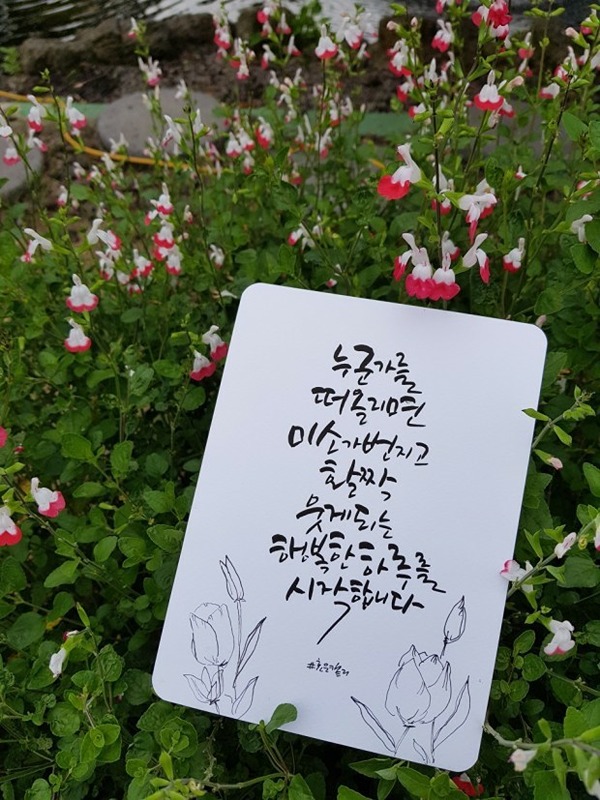 누군가를
떠올리면
미소가 번지고
활짝
웃게되는
행복한 하루를
시작합니다